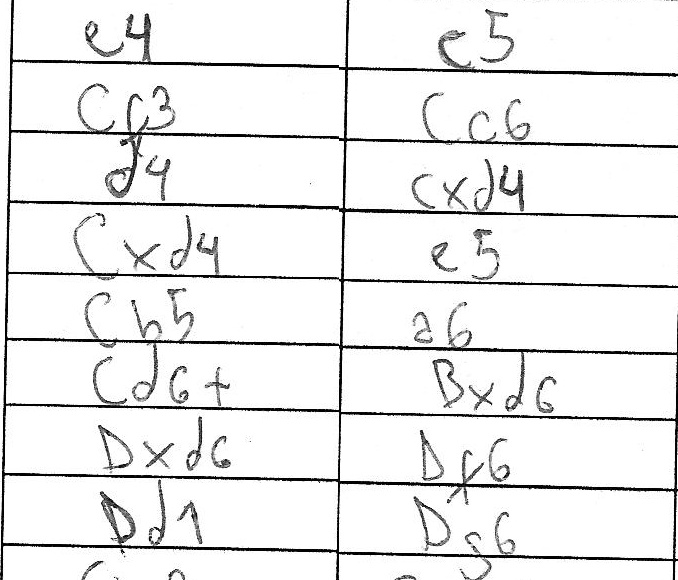 e4 c5
Cf3 Cc6
d4 cxd4
Cxd4 e5
Cb5 a6
Cd6+ Bxd6
Dxd6 Df6
Dd1 Dg6